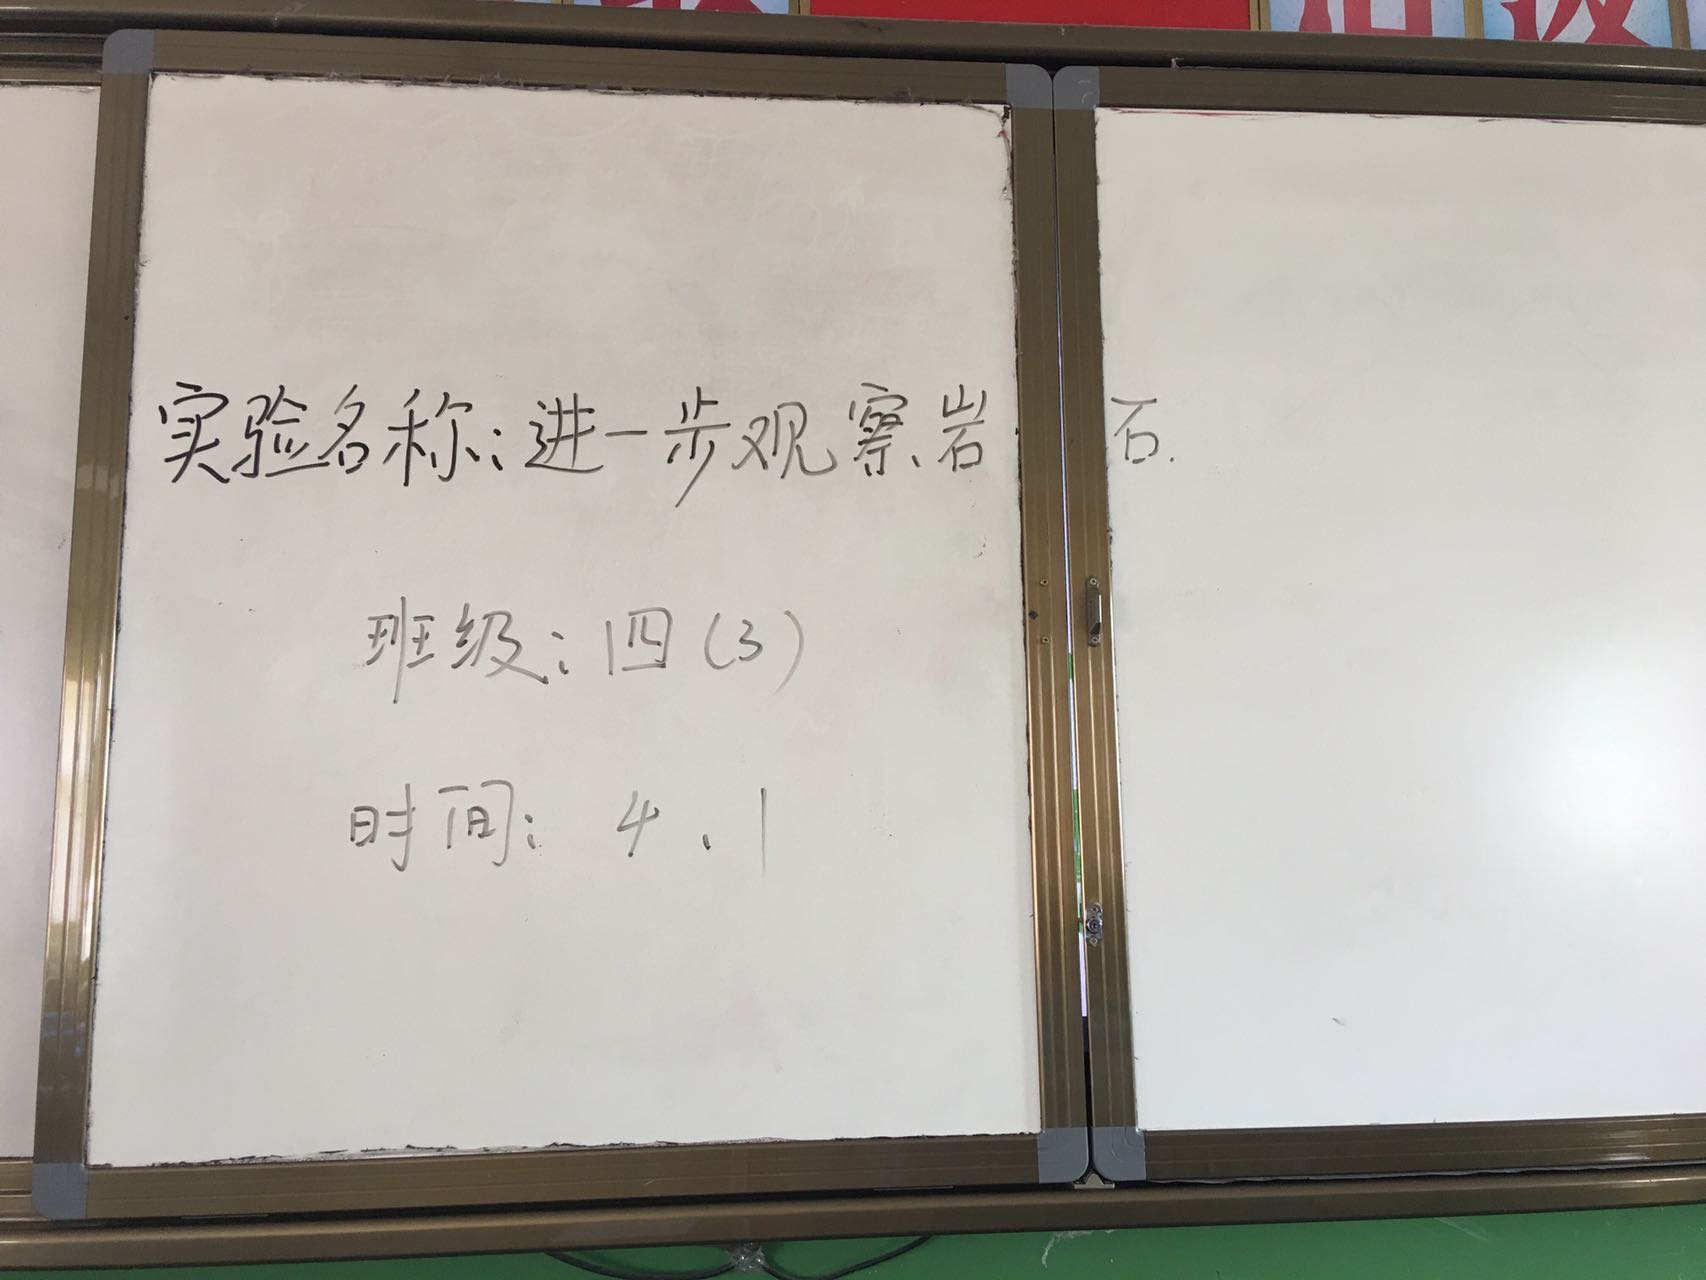 实验名称:进一步观察岩石.
班级:四(3)
时间:4.1